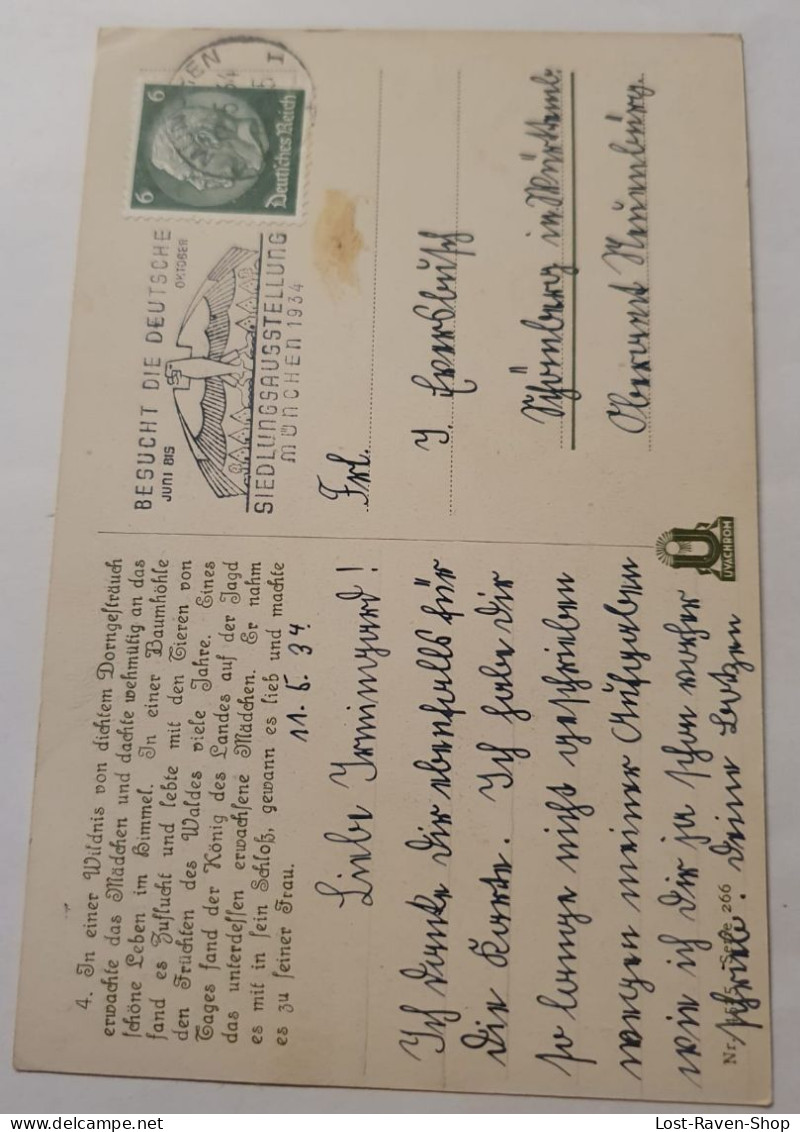 4. In einer Wildnis von dichtem Dorngesträuch
erwachte das Mädchen und dachte wehmütig an das
schöne Leben im Himmel. In einer Baumhöhle
fand es Zuflucht und lebte mit den Tieren von
den Früchten des Waldes viele Jahre. Eines
Tages fand der König des Landes auf der Jagd
das unterdessen erwachsene Mädchen. Er nahm
es mit in sein Schloß, gewann es lieb und machte
es zu seiner Frau.
11. 5. 34.
Liebe Irmingard!
Ich danke Dir ebenfalls für
die Karte. Ich habe Dir
so lange nicht geschrieben
wegen meiner Aufgaben
wie ich Dir ja schon vorher
schrieb. Deine
Nr. Serie 266
UVACHROM
BESUCHT DIE DEUTSCHE
JUNI BIS OKTOBER
SIEDLUNGSAUSSTELLUNG
MÜNCHEN 1934
6 6
Deutsches Reich
Frl.
I.
Schönberg in Württemb.
Oberamt Neuenbürg.
Lost-Raven-Shop